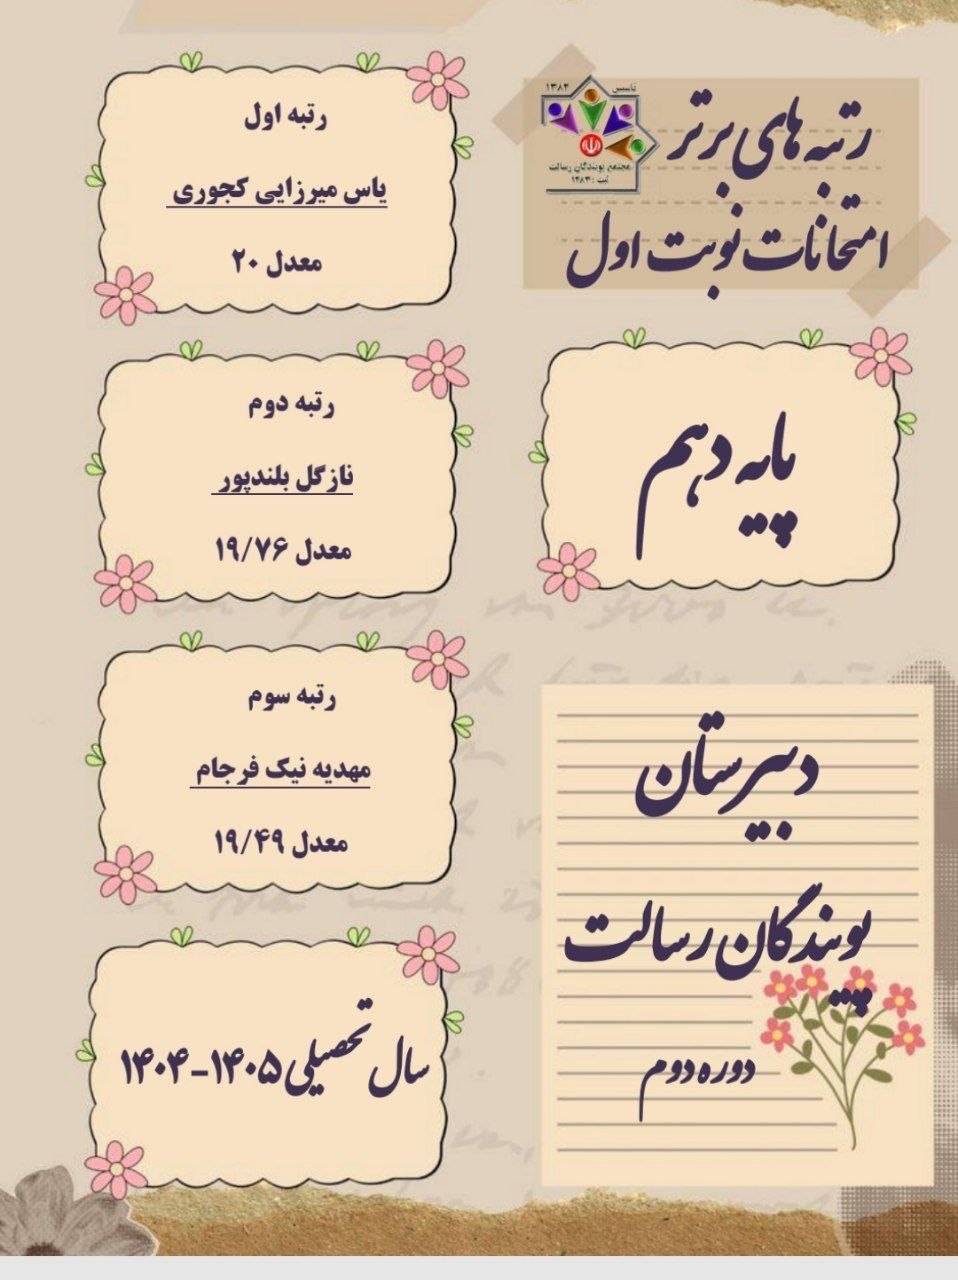 رتبه های برتر
امتحانات نوبت اول
تاسیس ۱۳۸۲
مجتمع پویندگان رسالت
ثبت : ۱۳۸۳
پایه دهم
دبیرستان
پویندگان رسالت
دوره دوم
رتبه اول
یاس میرزایی کجوری
معدل ۲۰
رتبه دوم
نازگل بلندپور
معدل ۱۹/۷۶
رتبه سوم
مهدیه نیک فرجام
معدل ۱۹/۴۹
سال تحصیلی ۱۴۰۵-۱۴۰۴